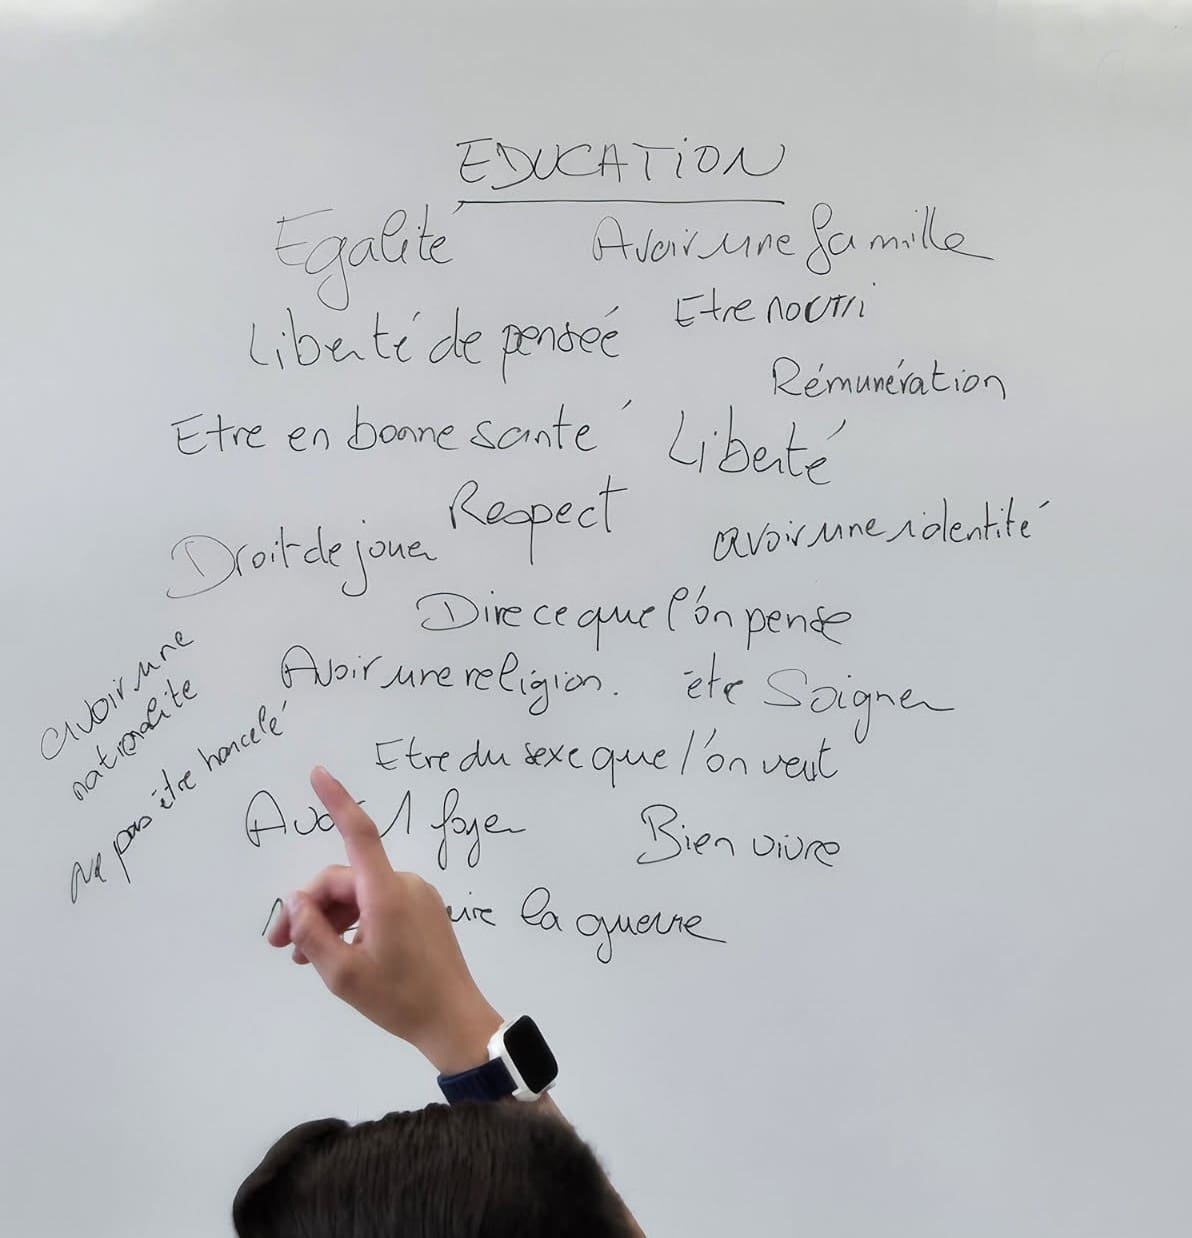 EDUCATION
Egalité
Avoir une famille
Etre nourri
Liberté de penseé
Rémunération
Etre en bonne santé
Liberté
Respect
avoir une identité
Droit de jouer
Dire ce que l'on pense
avoir une
nationalite
Avoir une religion.
être Soigner
Ne pas être harcelé
Etre du sexe que l'on veut
1 foyer
Bien vivre
la guerre